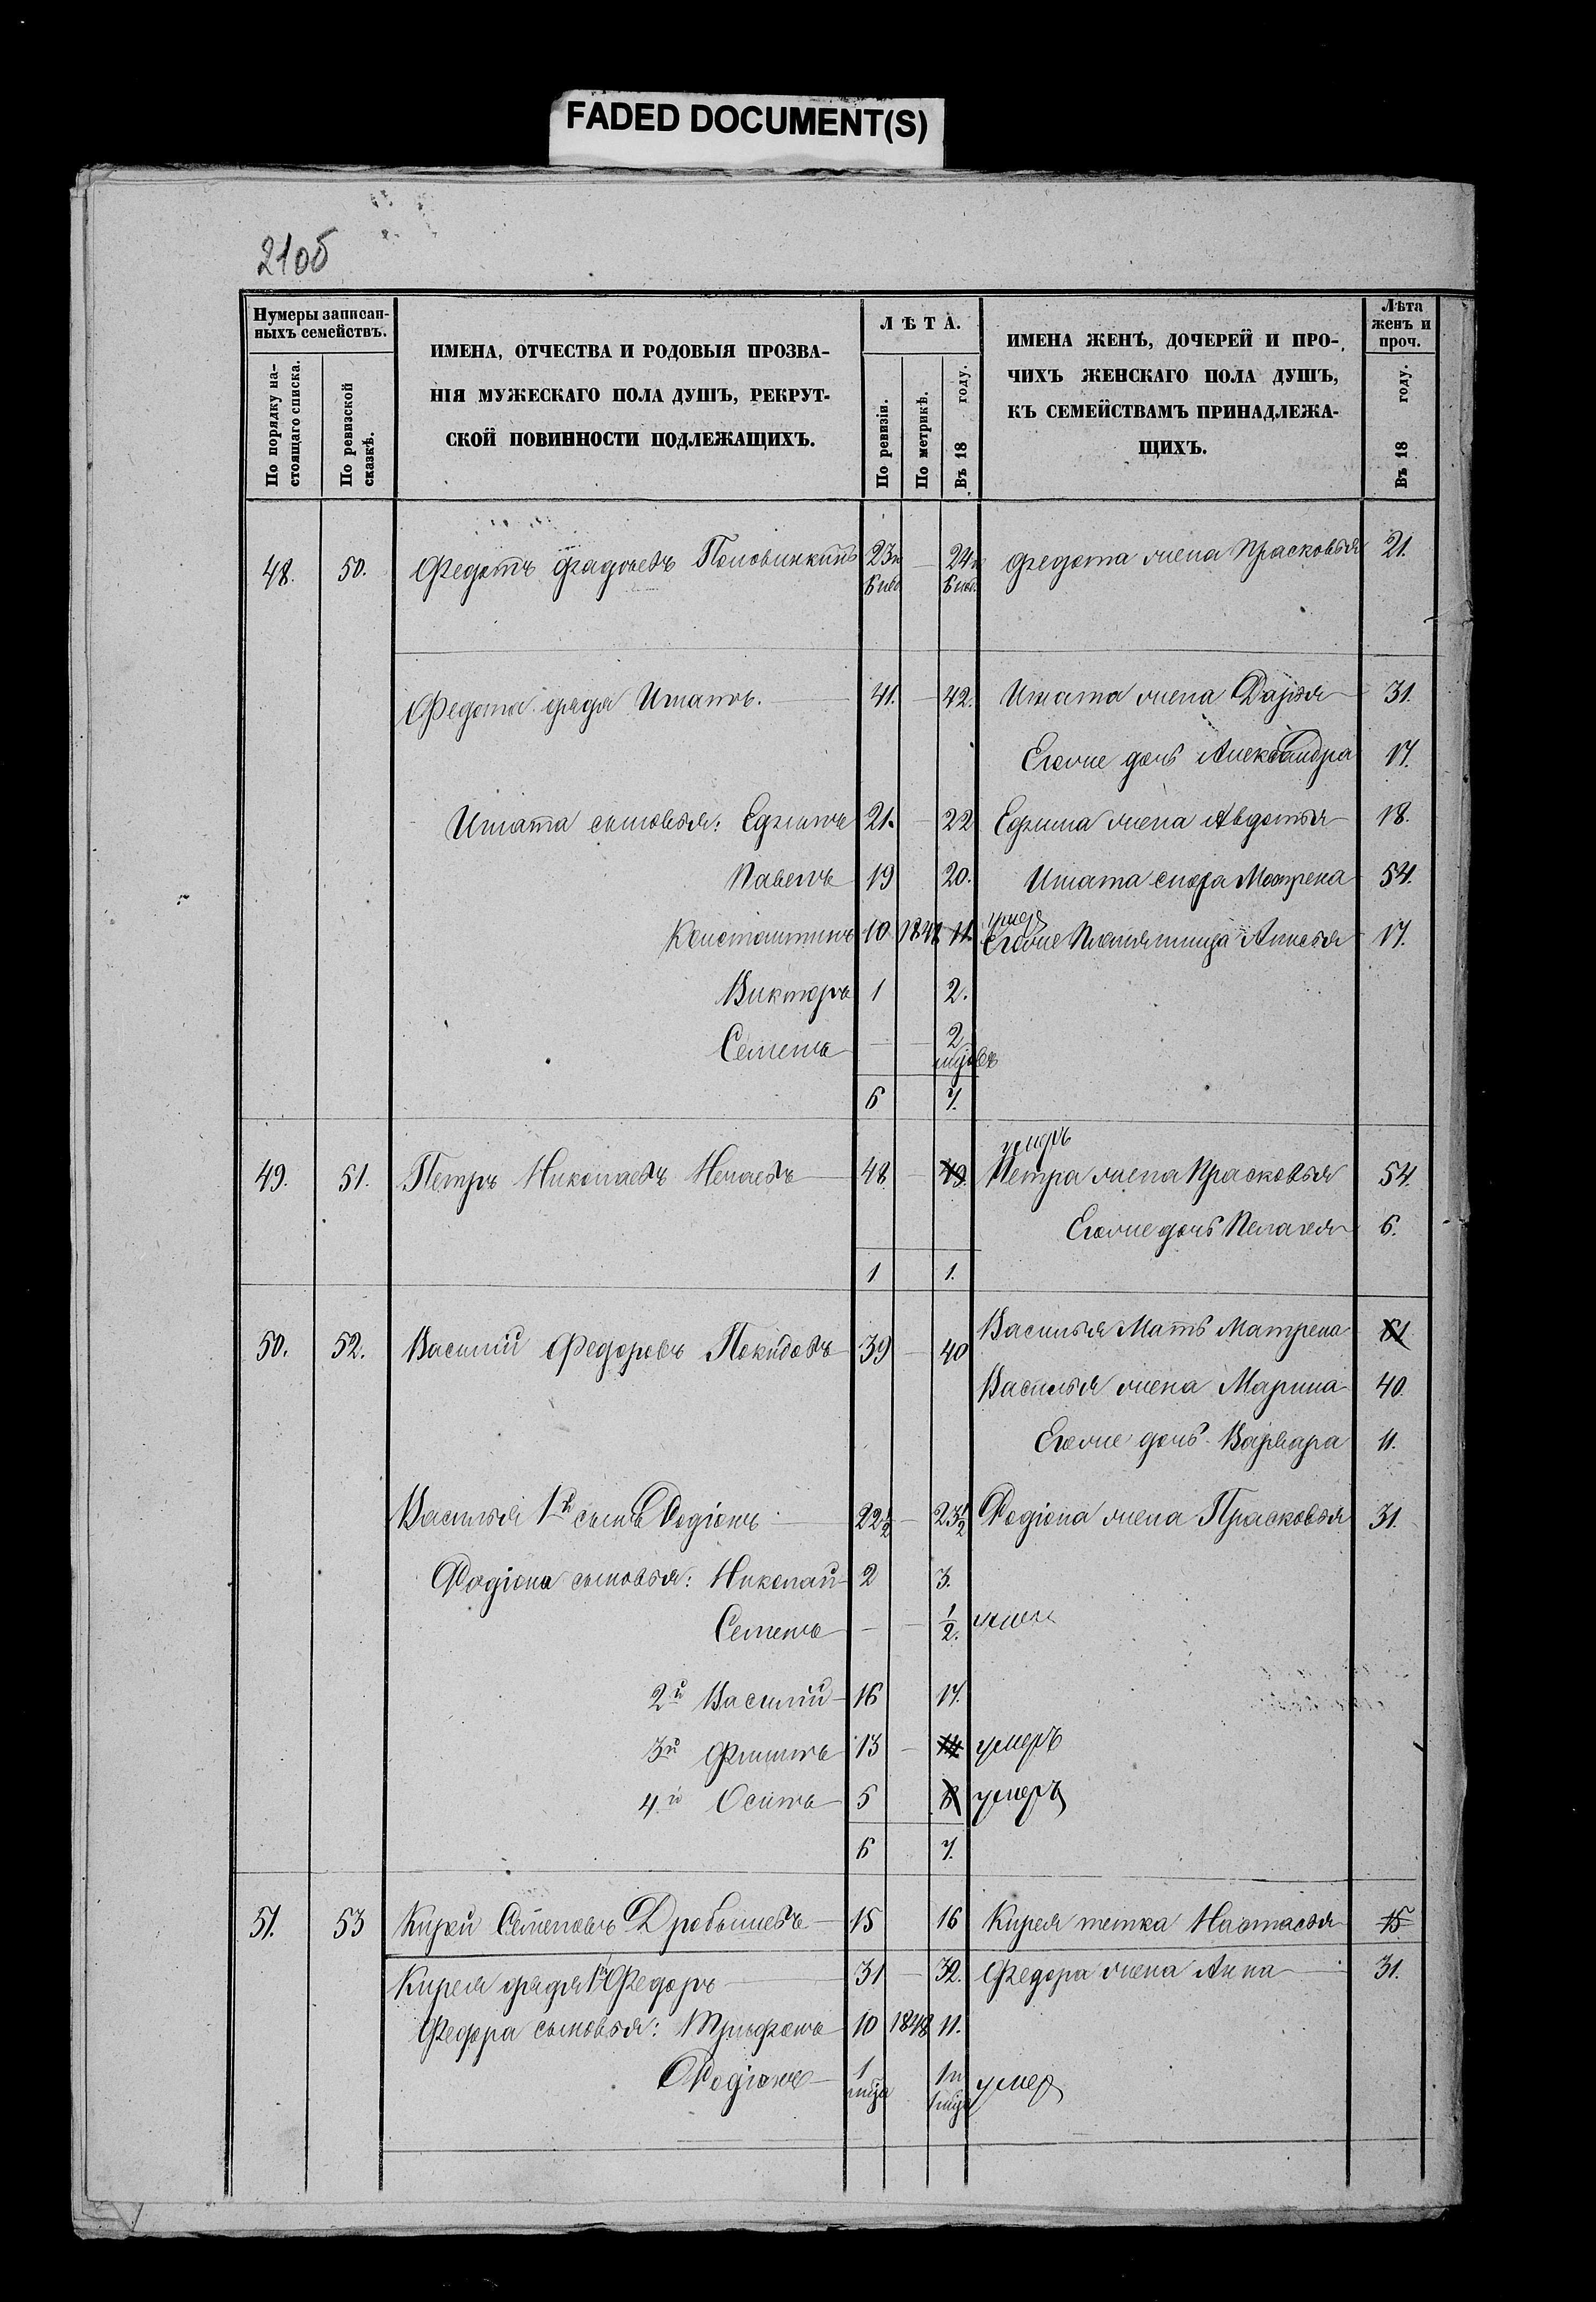 FADED DOCUMENT(S)
21об
Нумеры записан-
ныхъ семействъ.
По порядку на-
стоящаго списка.
По ревизской
сказкѣ.
ИМЕНА, ОТЧЕСТВА И РОДОВЫЯ ПРОЗВА-
НІЯ МУЖЕСКАГО ПОЛА ДУШЪ, РЕКРУТ-
СКОЙ ПОВИННОСТИ ПОДЛЕЖАЩИХЪ.
ЛѢТА.
По ревизіи.
По метрикѣ.
Въ 18 году.
ИМЕНА ЖЕНЪ, ДОЧЕРЕЙ И ПРО-
ЧИХЪ ЖЕНСКАГО ПОЛА ДУШЪ,
КЪ СЕМЕЙСТВАМЪ ПРИНАДЛЕЖА-
ЩИХЪ.
Лѣта
женъ и
проч.
Въ 18 году.
48. 50. Федотъ Фадѣевъ 23 — 24 Федота жена Прасковья 21.
Федота дядя Игнатъ. 41. — 42. Игната жена Дарья 31.
Егоже дочь Александра 17.
Игната сыновья: Ефимъ 21. — 22 Ефима жена Авдотья 18.
Павелъ 19 20. Игната сноха Матрена 54.
умер
Константинъ 10 1848 11. Егоже Племянница Анисья 17.
Викторъ 1 2.
Семенъ — — 2
6 7.
умеръ
49. 51. Петръ Николаевъ Нечаевъ 48 — 49. Петра жена Прасковья 54.
Егоже дочь Пелагея 6.
1 1.
50. 52. Василій Федоровъ 39 — 40 Василья Мать Матрена 61
Василья жена Марина 40.
Егоже дочь Варвара 11.
Василья 1й сынъ Родіонъ 22½ — 23½ Родіона жена Прасковья 31.
Родіона сыновья: Николай 2 3.
Семенъ — — ½.
2й Василій 16 17.
3й Филипъ 13 — 14 умеръ
4й Осипъ 5 6 умеръ
6 7.
51. 53 Кирей Семеновъ Дробышевъ 15 16 Кирея тетка Настасья 15
Кирея дядя 1й Федоръ 31 — 32. Федора жена Анна 31.
Федора сыновья: Трифонъ 10 1848 11.
Родіонъ 1 1 умер